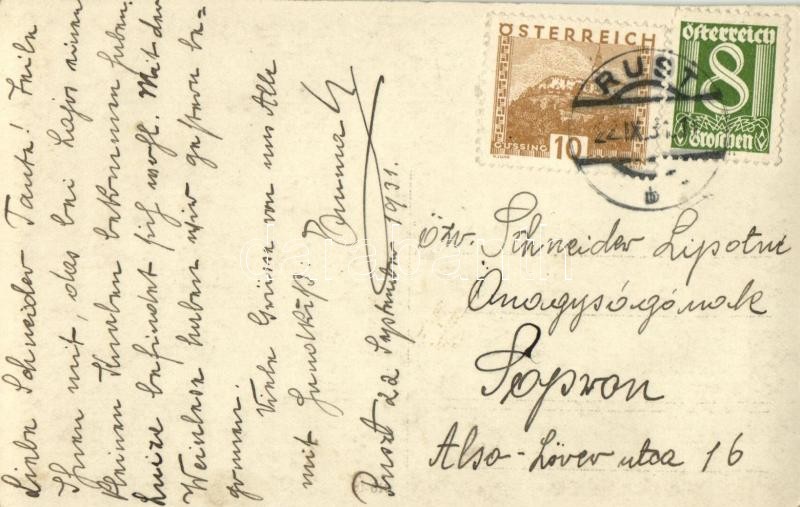 Liebe Schneider Tante! Teile
Ihnen mit, das bei Lajos einen
kleinen Knaben bekommen haben.
Luize befindet sich wohl. Mit der
Weinlese haben wir gestern be-
gonnen.
Viele Grüsse von uns Alle
mit Handkuß
Ruszt 22 September 1931.
ÖSTERREICH
GÜSSING
10
Österreich
8
Groschen
RUST
22.IX.31
b
özv. Schneider Lipótné
Őnagyságának
Sopron
Alsó-Lőver utca 16
darabanth